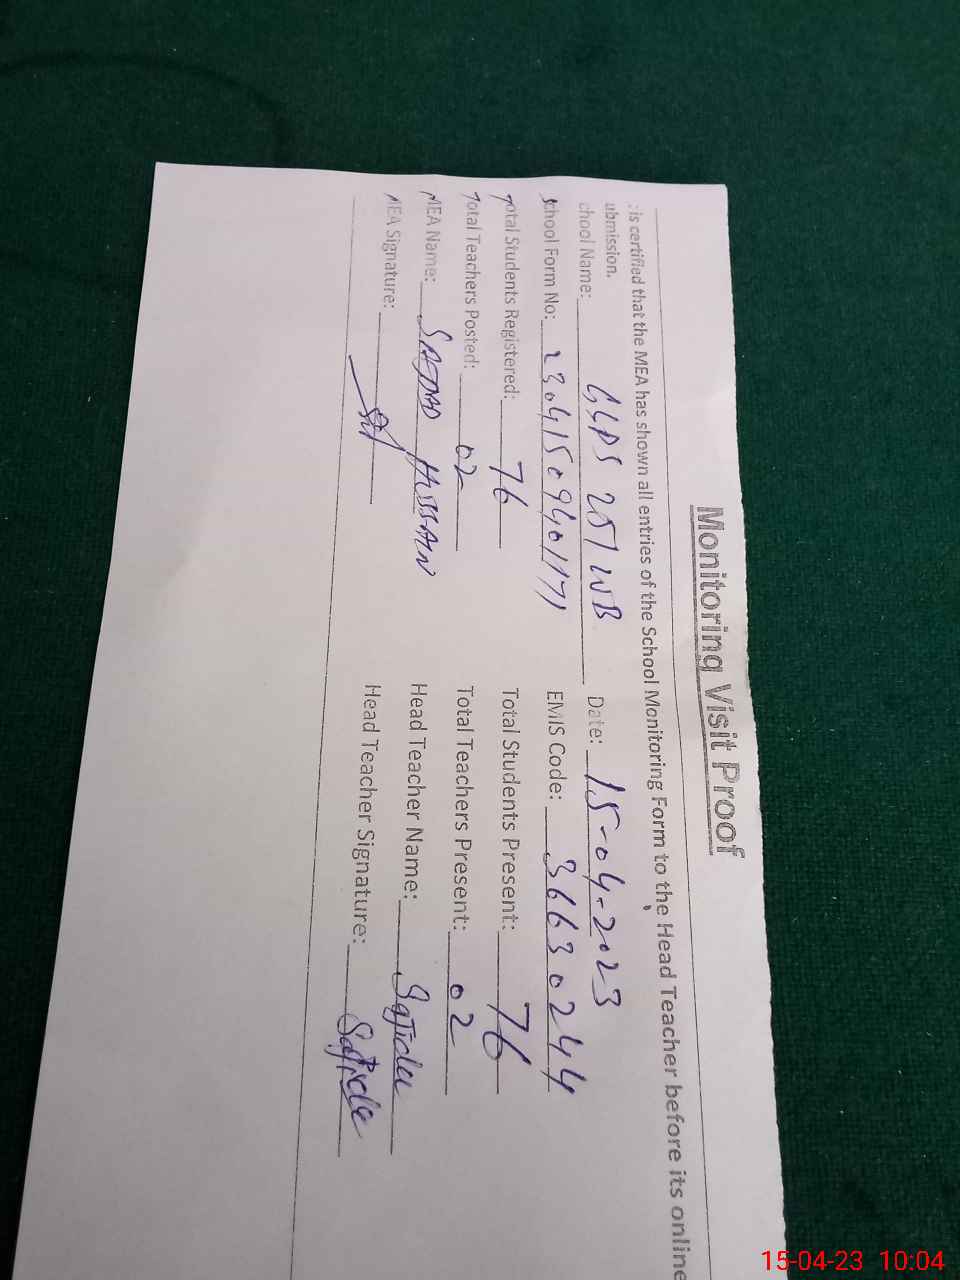 Monitoring Visit Proof
: is certified that the MEA has shown all entries of the School Monitoring Form to the Head Teacher before its online
ubmission.
chool Name: GGPS 251 WB Date: 15-04-2023
School Form No: 23041509401171 EMIS Code: 36630244
Total Students Registered: 76 Total Students Present: 76
Total Teachers Posted: 02 Total Teachers Present: 02
MEA Name: SAJJAD HUSSAIN Head Teacher Name: Sajida
MEA Signature: Head Teacher Signature: Sajida
15-04-23 10:04